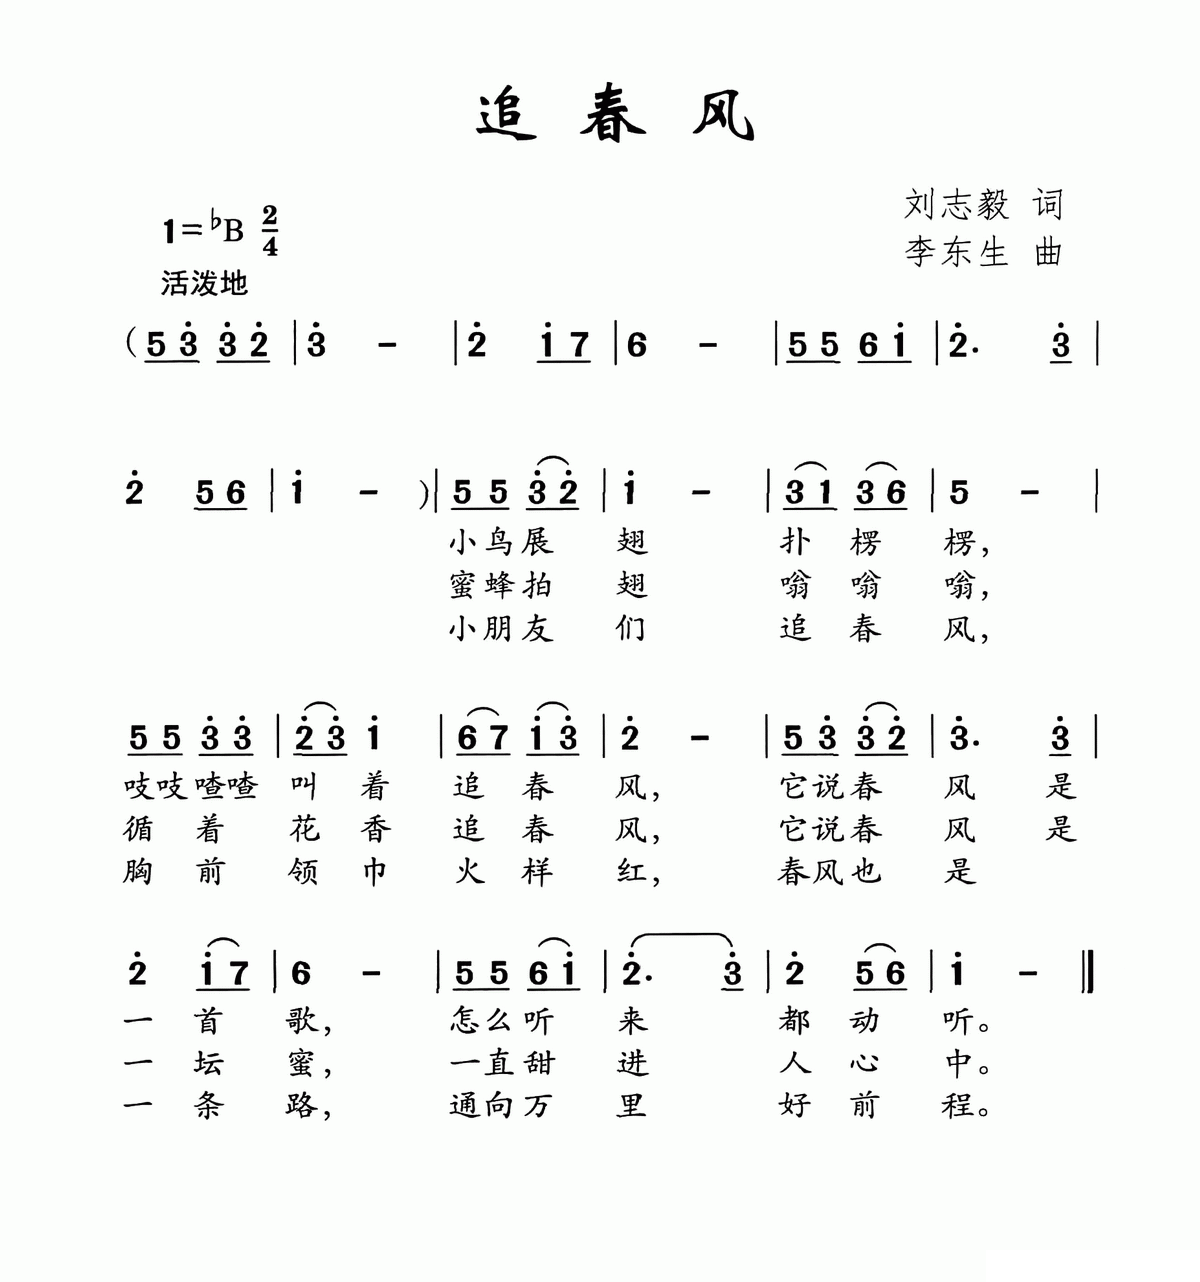 追春风
刘志毅 词
1=♭B 2/4
李东生 曲
活泼地
(5 3̇ 3̇ 2̇ | 3̇ - | 2̇ 1̇ 7 | 6 - | 5 5 6 1̇ | 2̇. 3̇ |
2̇ 5 6 | 1̇ - )| 5 5 3̇ 2̇ | 1̇ - | 3 1 3 6 | 5 - |
小鸟展 翅 扑 楞 楞，
蜜蜂拍 翅 嗡 嗡 嗡，
小朋友 们 追 春 风，
5 5 3̇ 3̇ | 2̇ 3̇ 1̇ | 6 7 1̇ 3̇ | 2̇ - | 5 3̇ 3̇ 2̇ | 3̇. 3̇ |
吱吱喳喳 叫 着 追 春 风， 它说春 风 是
循 着 花 香 追 春 风， 它说春 风 是
胸 前 领 巾 火 样 红， 春风也 是
2̇ 1̇ 7 | 6 - | 5 5 6 1̇ | 2̇. 3̇ | 2̇ 5 6 | 1̇ - ‖
一 首 歌， 怎么听 来 都 动 听。
一 坛 蜜， 一直甜 进 人 心 中。
一 条 路， 通向万 里 好 前 程。